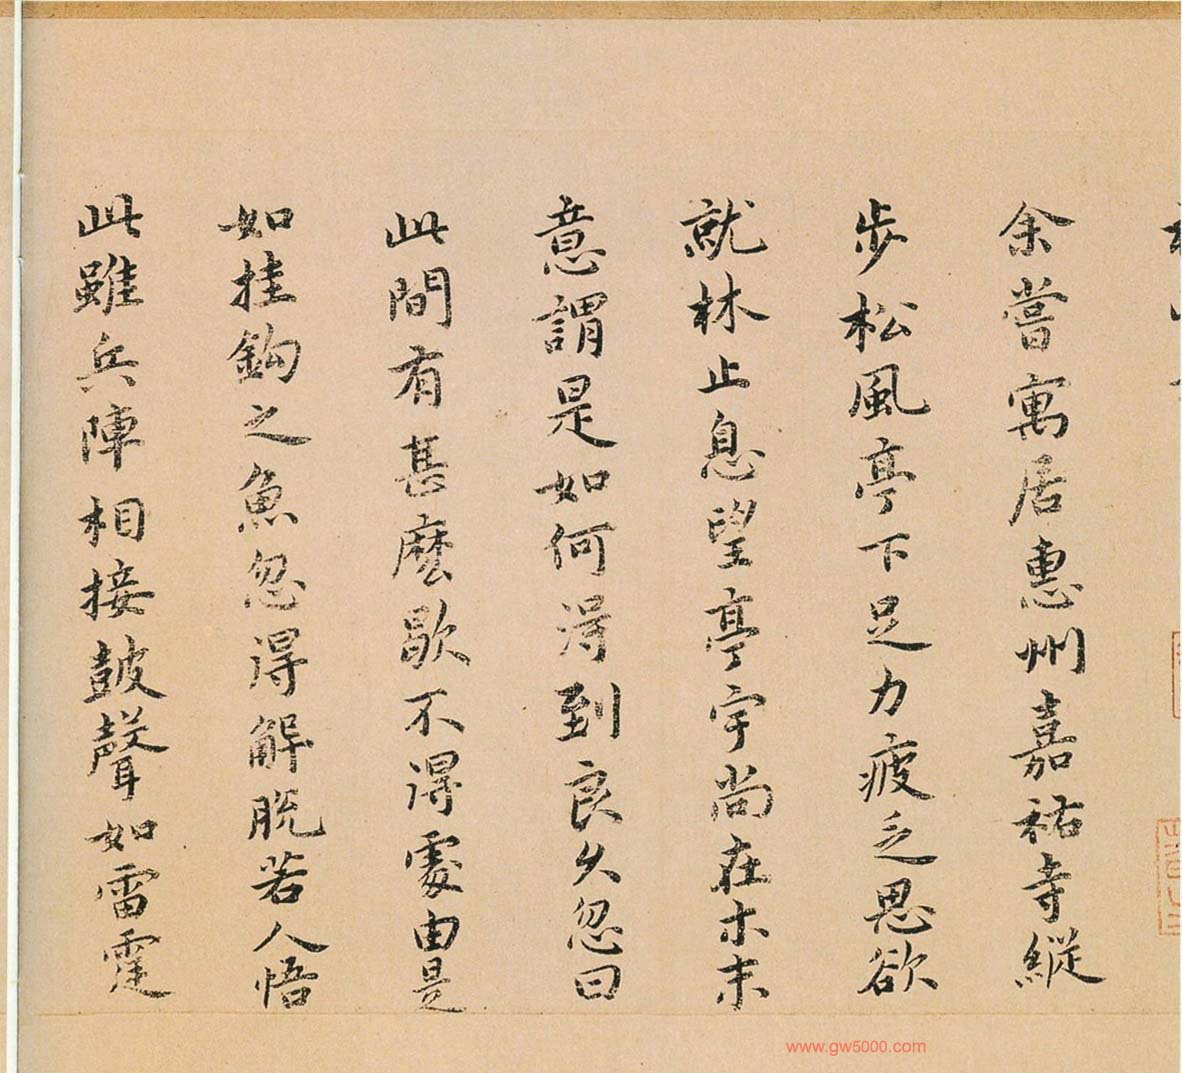 余嘗寓居惠州嘉祐寺縱
步松風亭下足力疲乏思欲
就林止息望亭宇尚在木末
意謂是如何得到良久忽曰
此間有甚麼歇不得處由是
如挂鈎之魚忽得解脫若人悟
此雖兵陣相接鼓聲如雷霆
www.gw5000.com